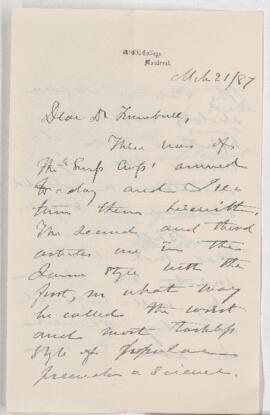 McGill College,
Montreal.
Mch 21/87
Dear Dr Turnbull,
Three nos of
the arrived
to-day and I re
turn them herewith.
The second and third
articles are in the
same style with the
first, in what may
be called the worst
and most
style of popular
science.